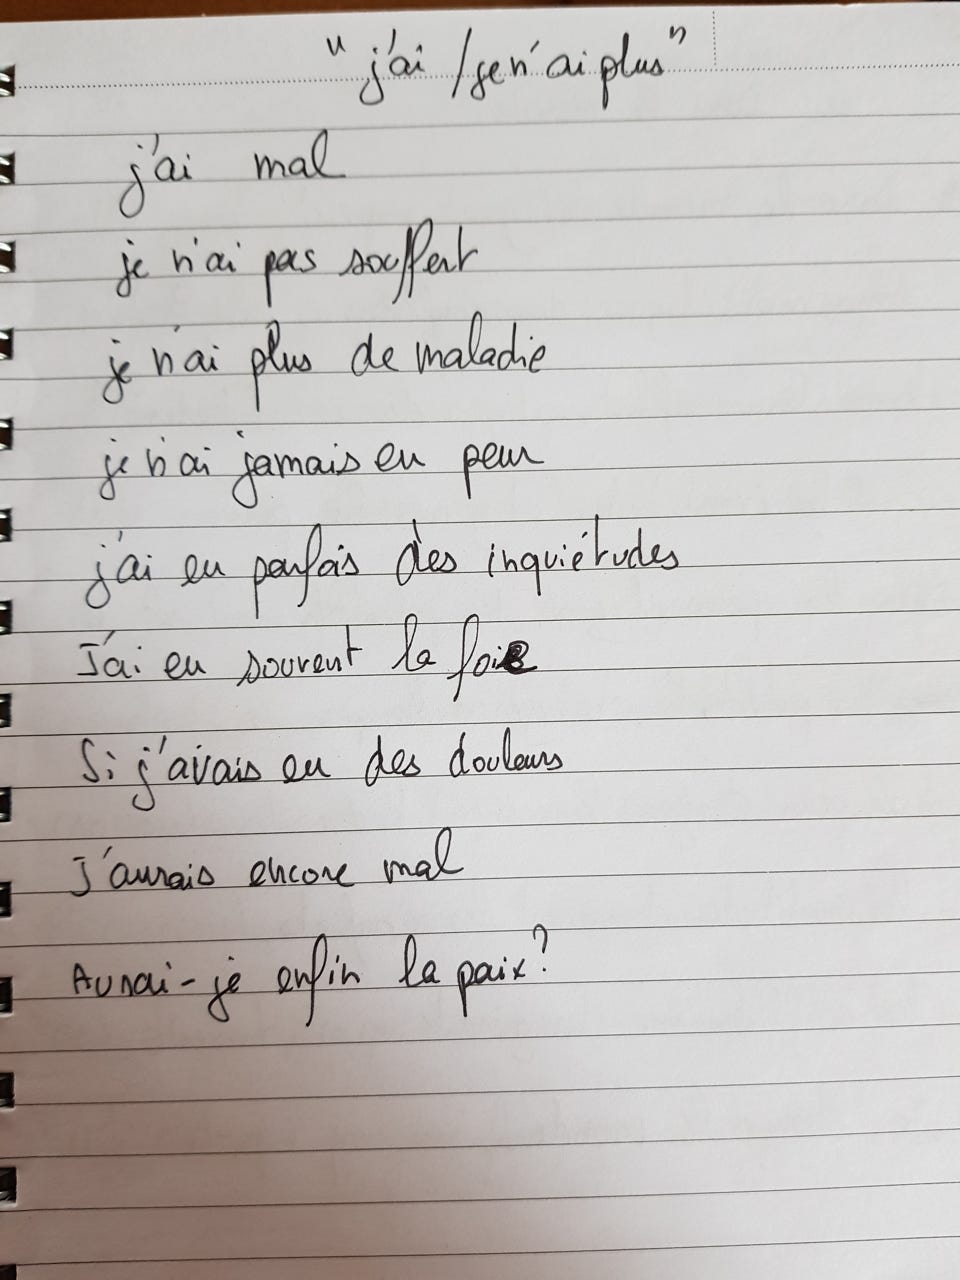 "j'ai / je n'ai plus"
j'ai mal
je n'ai pas souffert
je n'ai plus de maladie
je n'ai jamais eu peur
j'ai eu parfois des inquiétudes
J'ai eu souvent la foi
Si j'avais eu des douleurs
J'aurais encore mal
Aurai-je enfin la paix?